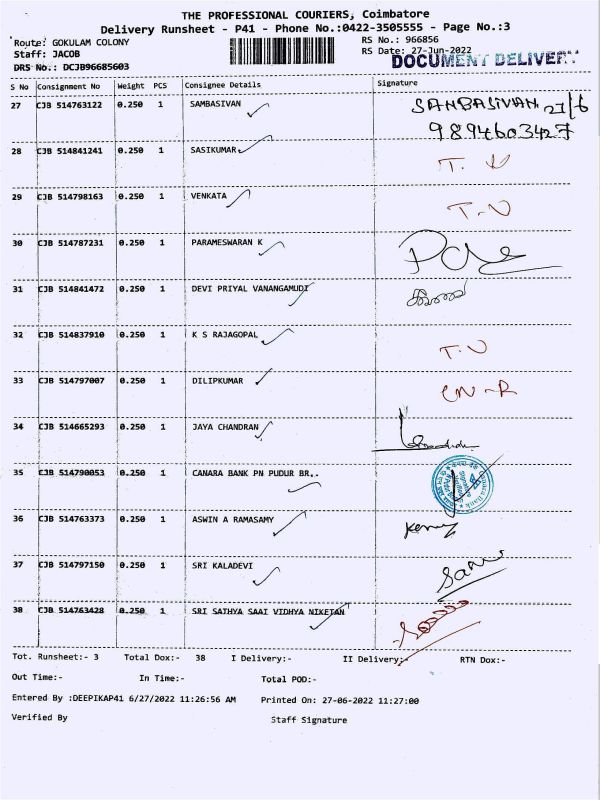 THE PROFESSIONAL COURIERS, Coimbatore
Delivery Runsheet - P41 - Phone No.:0422-3505555 - Page No.:3
Route: GOKULAM COLONY RS No.: 966856
Staff: JACOB RS Date: 27-Jun-2022
DOCUMENT DELIVERY
DRS No.: DCJB96685603
S No Consignment No Weight PCS Consignee Details Signature
27 CJB 514763122 0.250 1 SAMBASIVAN SANBASIVAN 27/6
9894603427
28 CJB 514841241 0.250 1 SASIKUMAR T. V
29 CJB 514798163 0.250 1 VENKATA T.V
30 CJB 514787231 0.250 1 PARAMESWARAN K
31 CJB 514841472 0.250 1 DEVI PRIYAL VANANGAMUDI
32 CJB 514837910 0.250 1 K S RAJAGOPAL T.V
33 CJB 514797007 0.250 1 DILIPKUMAR
34 CJB 514665293 0.250 1 JAYA CHANDRAN
35 CJB 514790053 0.250 1 CANARA BANK PN PUDUR BR..
36 CJB 514763373 0.250 1 ASWIN A RAMASAMY
37 CJB 514797150 0.250 1 SRI KALADEVI
38 CJB 514763428 0.250 1 SRI SATHYA SAAI VIDHYA NIKETAN
Tot. Runsheet:- 3 Total Dox:- 38 I Delivery:- II Delivery:- RTN Dox:-
Out Time:- In Time:- Total POD:-
Entered By :DEEPIKAP41 6/27/2022 11:26:56 AM Printed On: 27-06-2022 11:27:00
Verified By Staff Signature